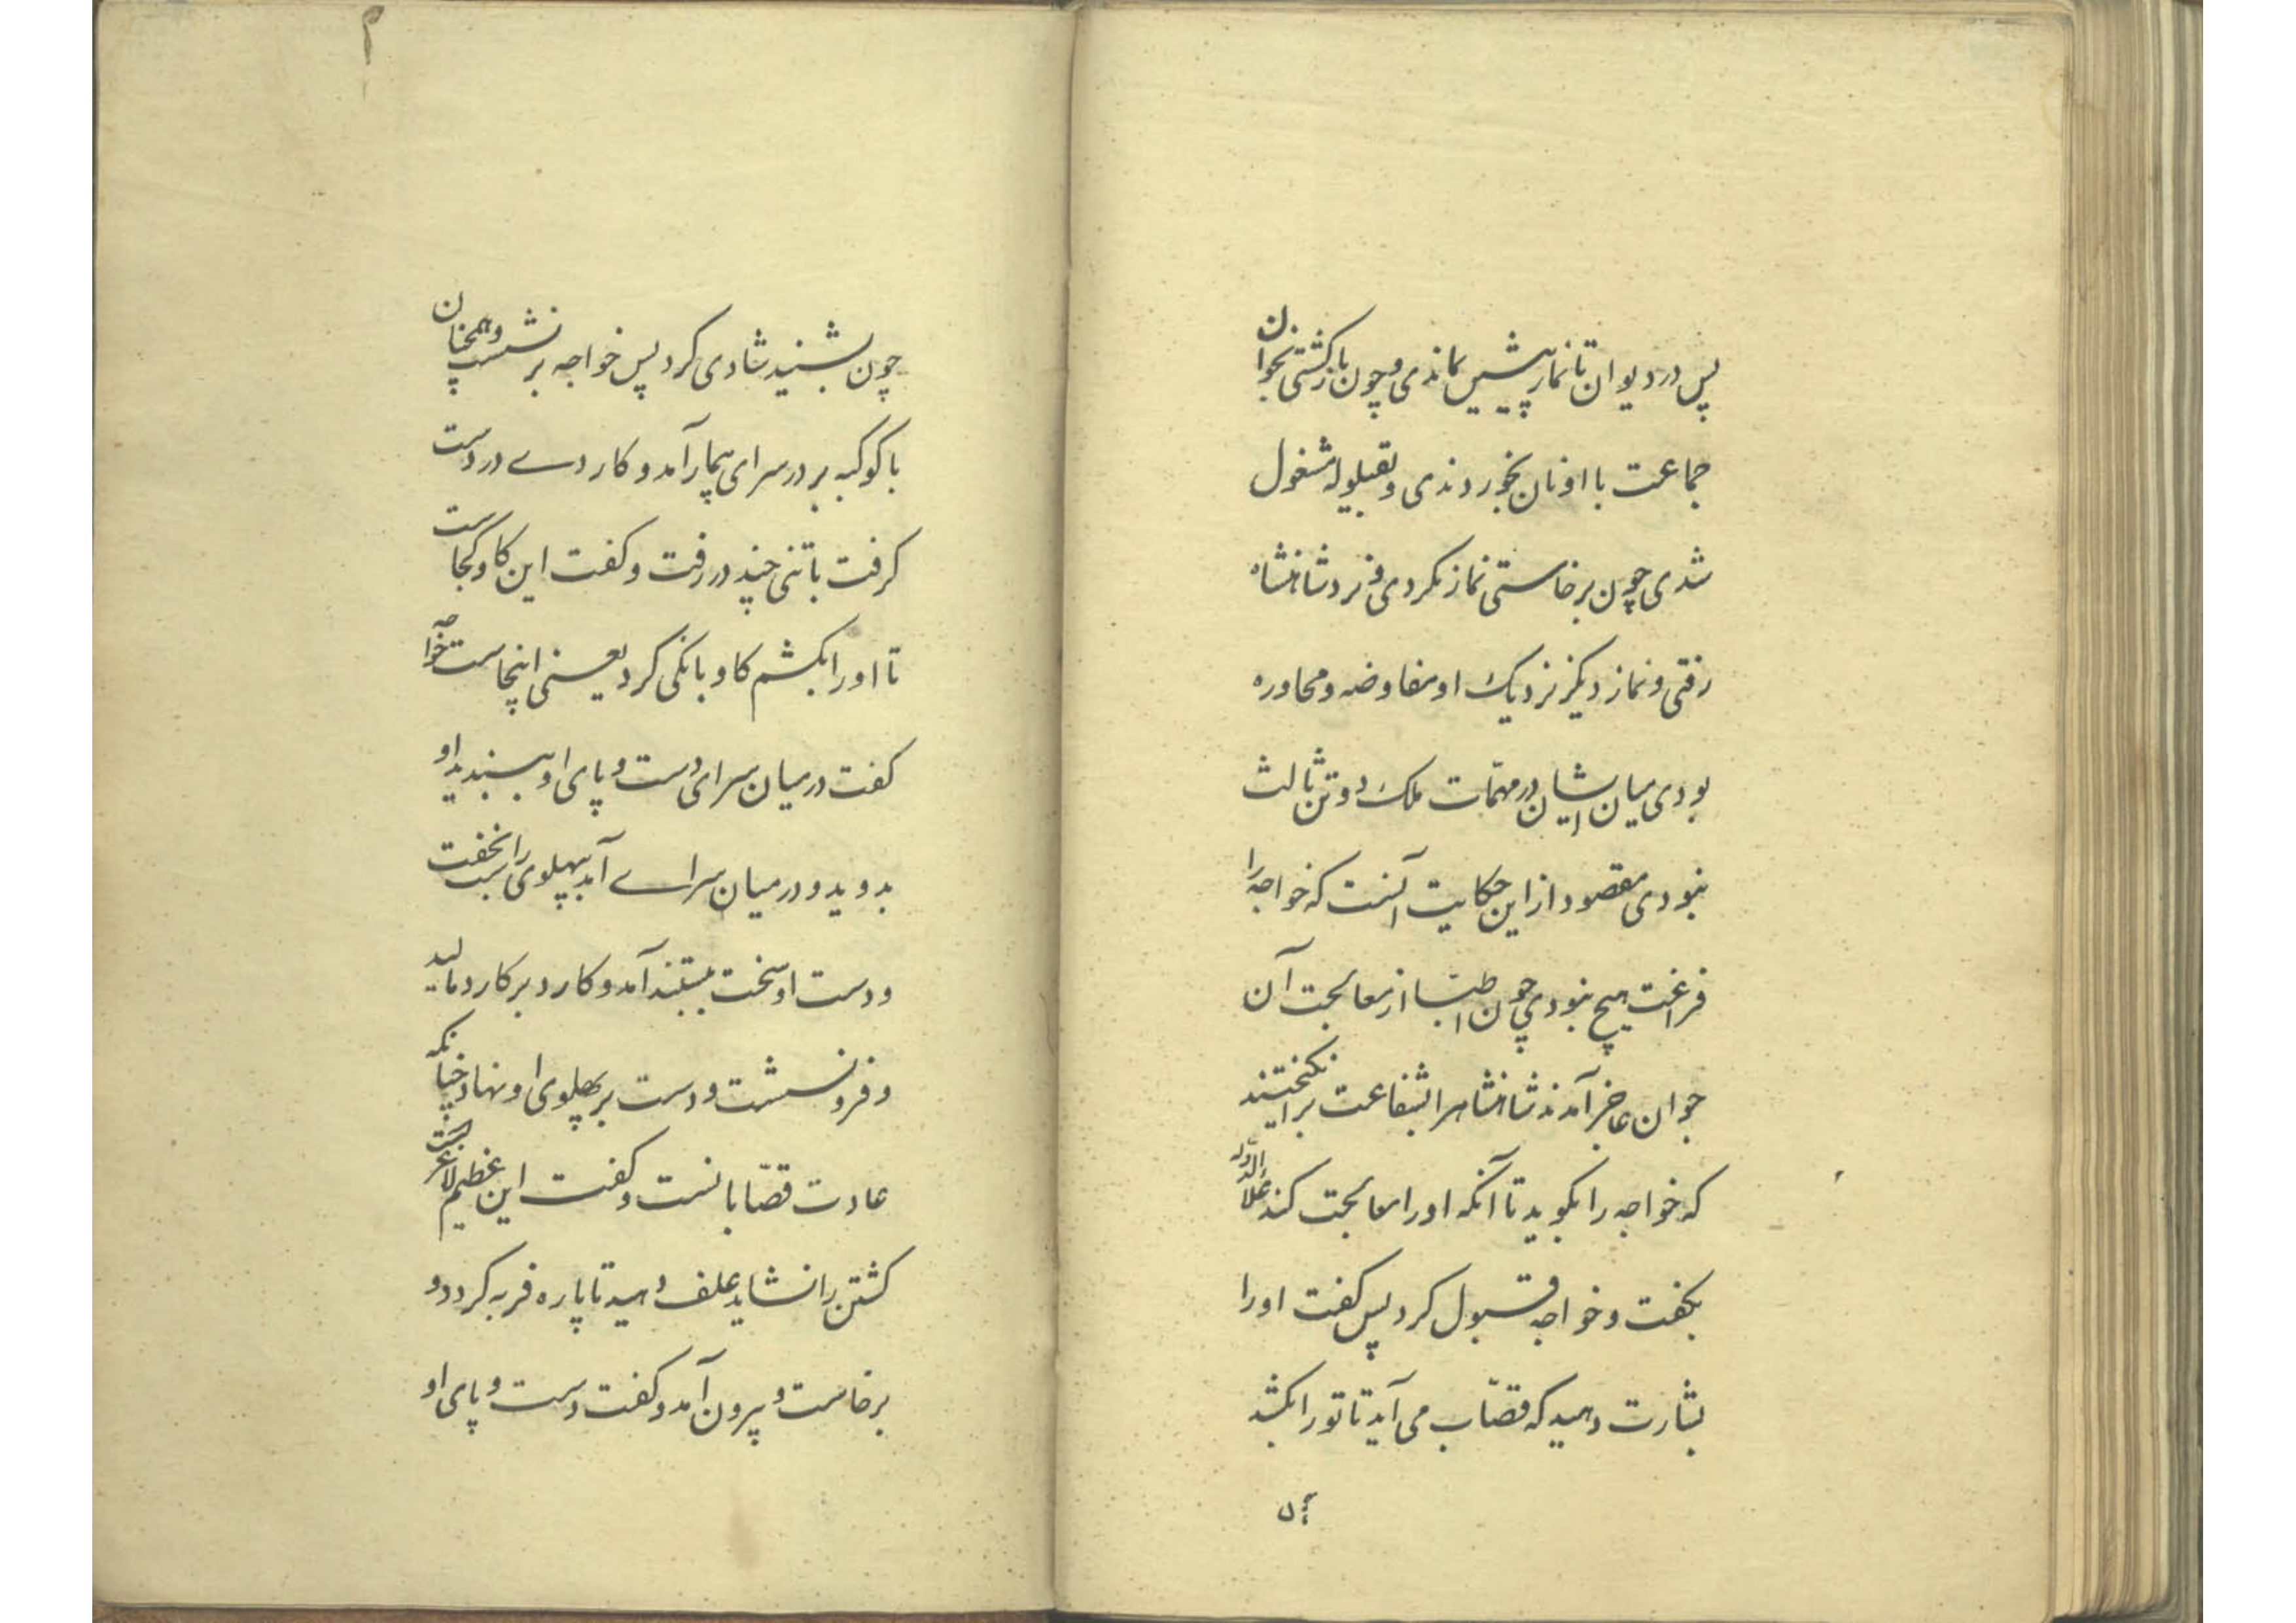 پس در دیوان تا نماز پیشین بماندی و چون بازگشتی بخوان
جماعت با او نان بخوردندی و بقیلوله مشغول
شدی چون برخاستی نماز بکردی و نزد شاهنشاه
رفتی و نماز دیگر نزدیک او مفاوضه و محاوره
بودی میان ایشان در مهمّات ملک دو تن ثالث
نبودی مقصود از این حکایت آنست که خواجه را
فراغت هیچ نبودی چون اطبّا از معالجت آن
جوان عاجز آمدند شاهنشاه را بشفاعت برانگیختند
که خواجه را بگوید تا آنکه او را معالجت کند علاالدوله
بگفت و خواجه قبول کرد پس گفت او را
بشارت دهید که قصّاب می آید تا تو را بکشد
چون
۲
چون بشنید شادی کرد پس خواجه برنشست و همچنان
با کوکبه بر در سرای بیمار آمد و کاردے در دست
گرفت با تنی چند در رفت و گفت این گاو کجاست
تا او را بکشم گاو بانگی کرد یعنی اینجاست خواجه
گفت در میان سرای دست و پای او ببندید او
بدوید و در میان سراے آمد بپهلوی راست بخفت
و دست او سخت ببستند آمد و کارد بر کارد مالید
و فرو نشست و دست بر پهلوی او نهاد چنانکه
عادت قصّابانست و گفت این عظیم لاغرست
کشتن را نشاید علف دهید تا پاره فربه گردد و
برخاست و بیرون آمد و گفت دست و پای او